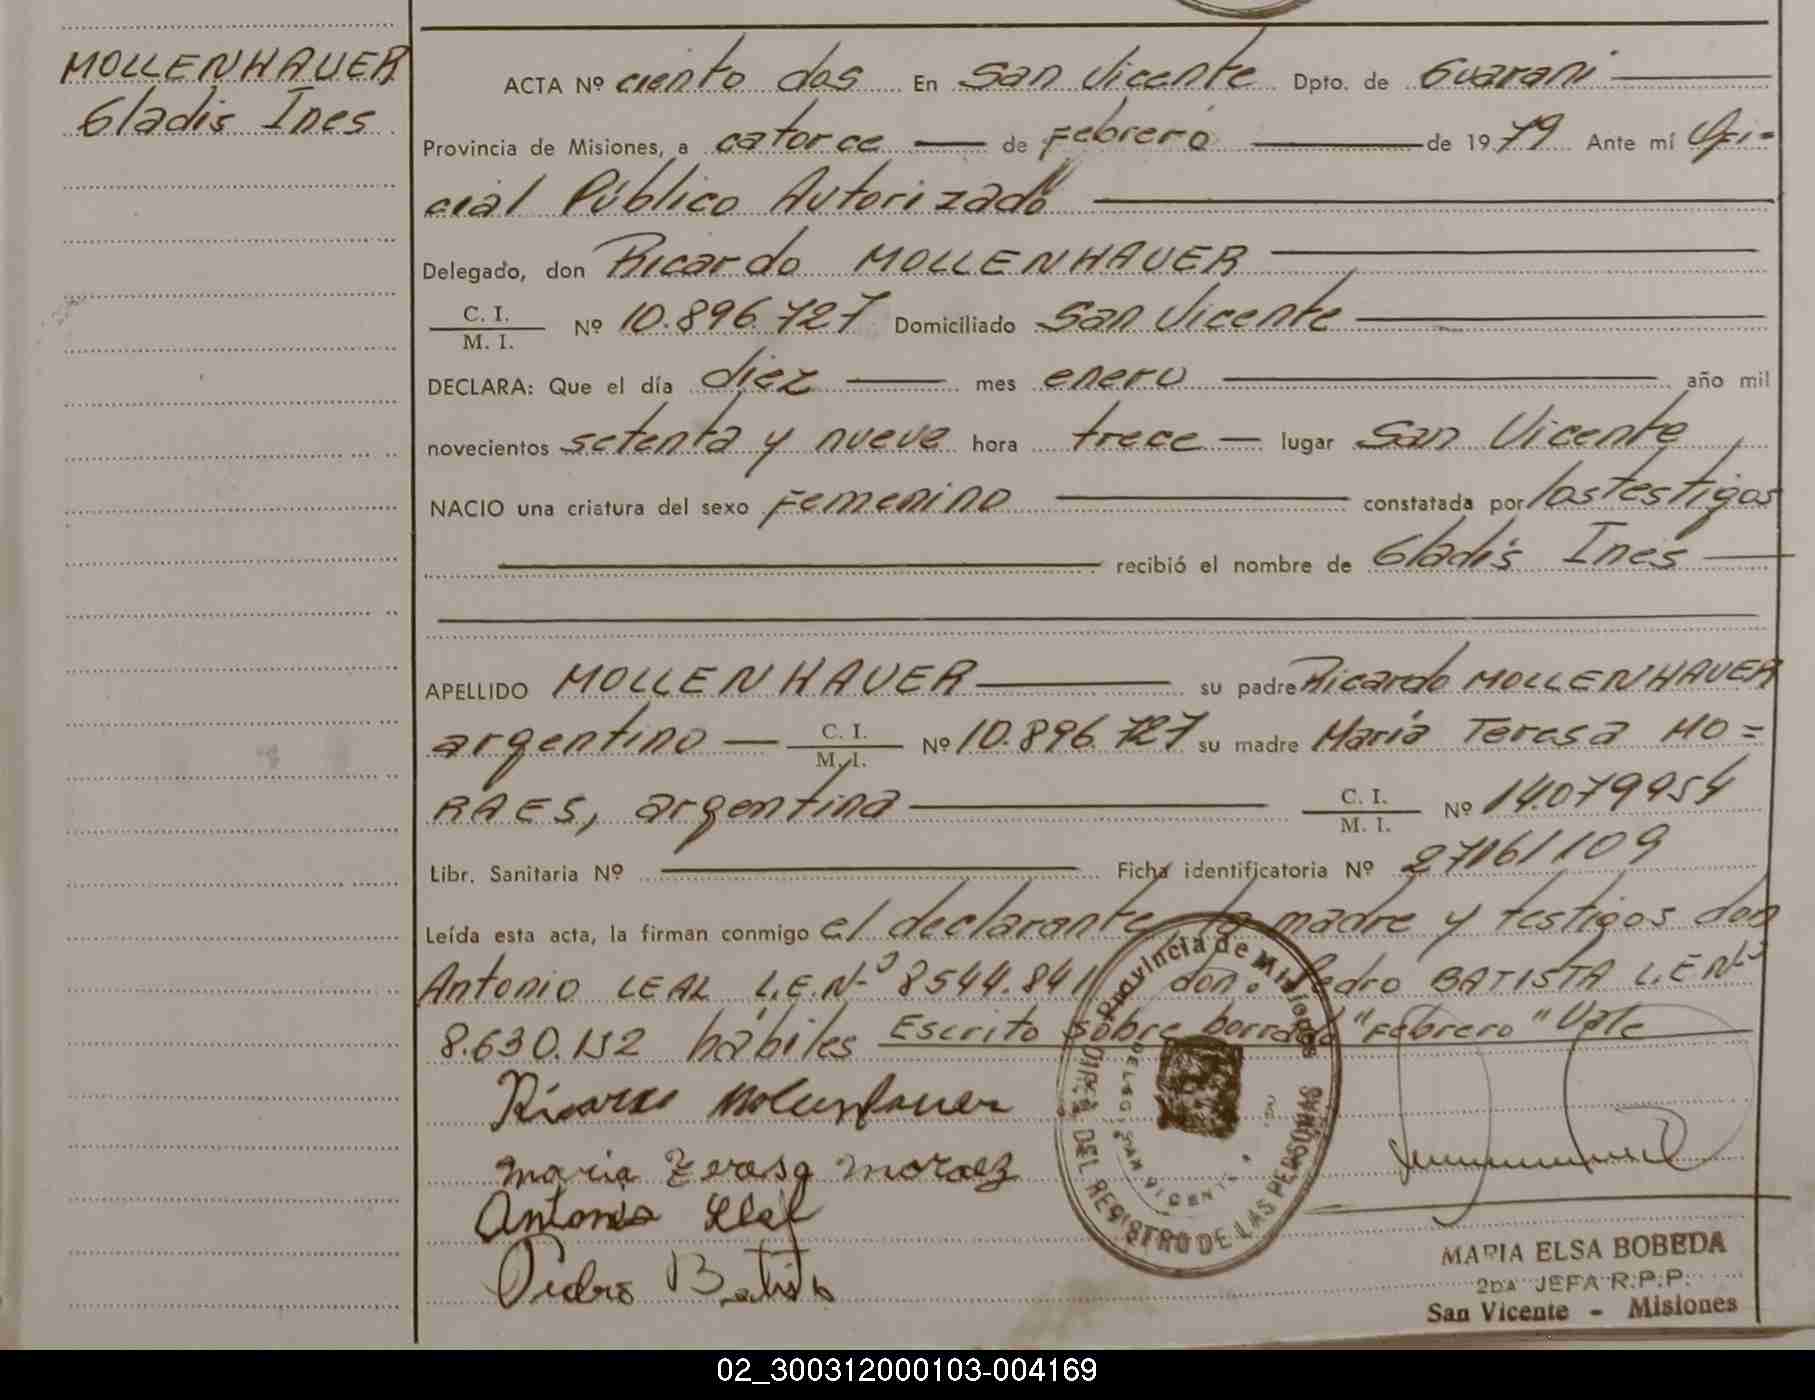 MOLLENHAUER
Gladis Ines
ACTA Nº ciento dos En San Vicente Dpto. de Guarani
Provincia de Misiones, a catorce de Febrero de 1979 Ante mí Ofi-
cial Público Autorizado
Delegado, don Ricardo MOLLENHAUER
C. I.
M. I. Nº 10.896.727 Domiciliado San Vicente
DECLARA: Que el día diez mes enero año mil
novecientos setenta y nueve hora trece lugar San Vicente
NACIO una criatura del sexo Femenino constatada por los testigos
recibió el nombre de Gladis Ines
APELLIDO MOLLENHAUER su padre Ricardo MOLLENHAUER
argentino C. I.
M. I. Nº 10.896.727 su madre María Teresa MO=
RAES, argentina C. I.
M. I. Nº 14.079954
Libr. Sanitaria Nº Ficha identificatoria Nº 27161109
Leída esta acta, la firman conmigo el declarante, la madre y testigos don
Antonio LEAL L.E.Nº 8544.841 don. Pedro BATISTA L.E Nº
8.630.152 hábiles Escrito sobre borrado "Febrero" Vale
Provincia de Misiones
DIREC. DEL REGISTRO DE LAS PERSONAS
DELEG. SAN VICENTE
Ricardo Molenhauer
maria Teresa moraez
Antonio Leal
Pedro Batista
MARIA ELSA BOBEDA
2DA JEFA R.P.P.
San Vicente - Misiones
02_300312000103-004169